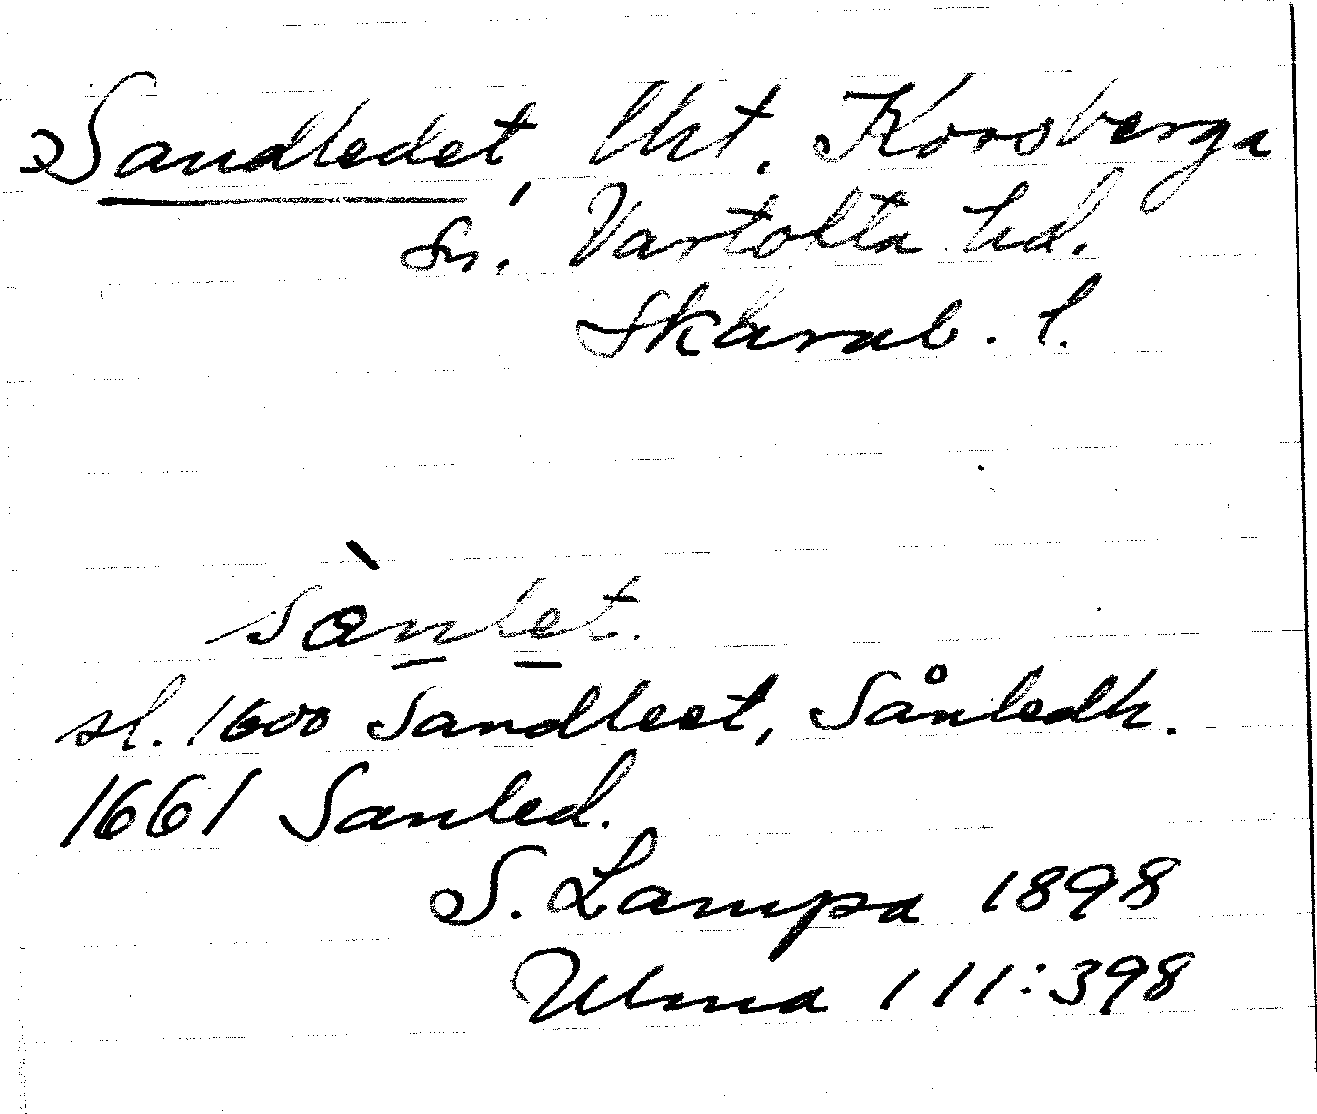 Sandledet, Utt. Korsberga
Sn. Vartofta hd.
Skarab. l.
sànlet.
sl. 1600 Sandleet, Sånledh.
1661 Sanled.
S. Lampa 1898
Ulma 111:398